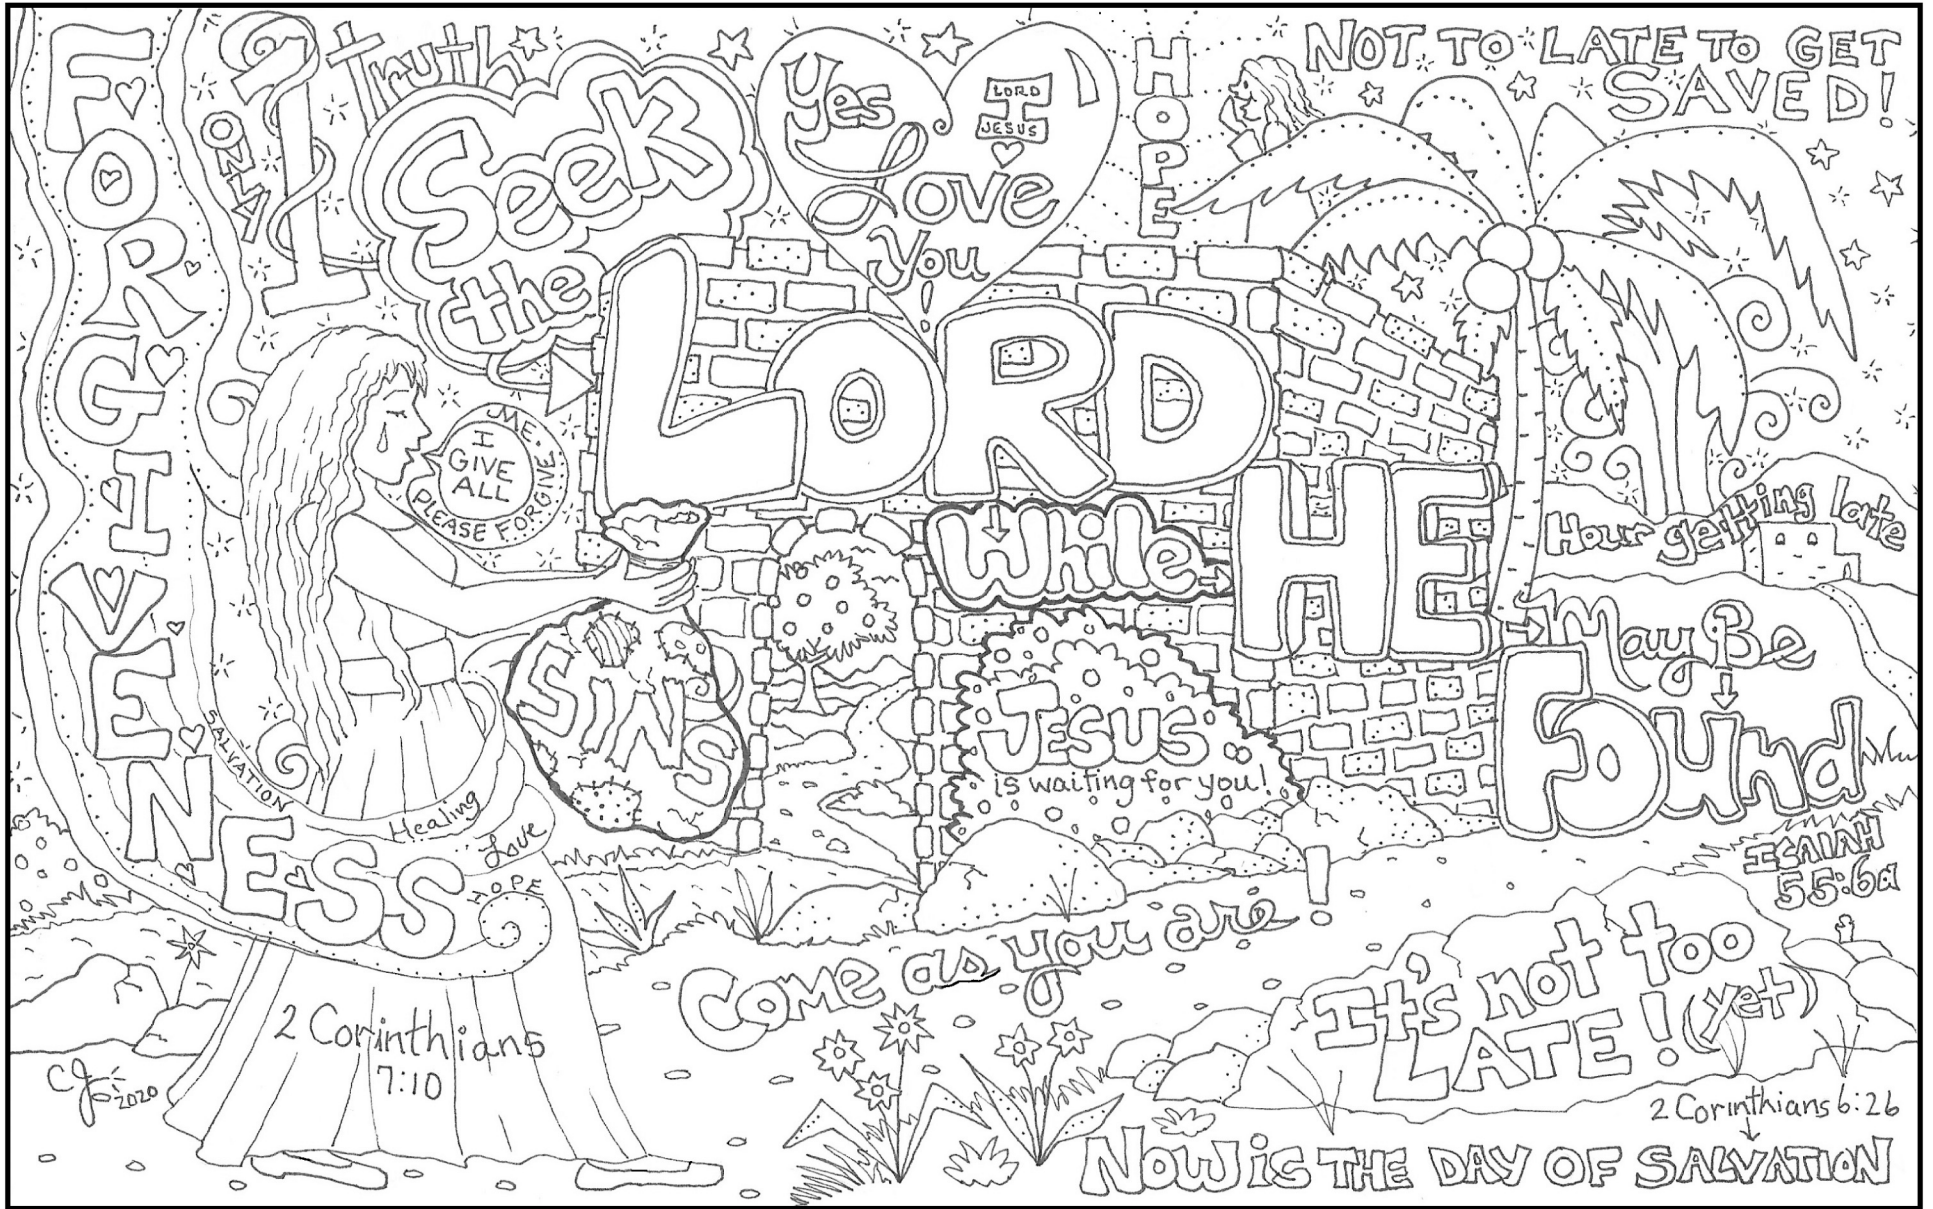 FORGIVENESS
ONLY
1
truth
Seek
the
LORD
While
HE
May Be
Found
ISAIAH
55:6a
Yes
I
LORD
JESUS
Love
you!
HOPE
NOT TO LATE TO GET
SAVED!
Hour getting late
I
GIVE
ALL
ME.
PLEASE FORGIVE
SINS
JESUS
is waiting for you!
SALVATION
Healing
Love
HOPE
Come as you are!
It's not too
LATE! (yet)
2 Corinthians
7:10
CJ
2020
2 Corinthians 6:2b
NOW is THE DAY OF SALVATION